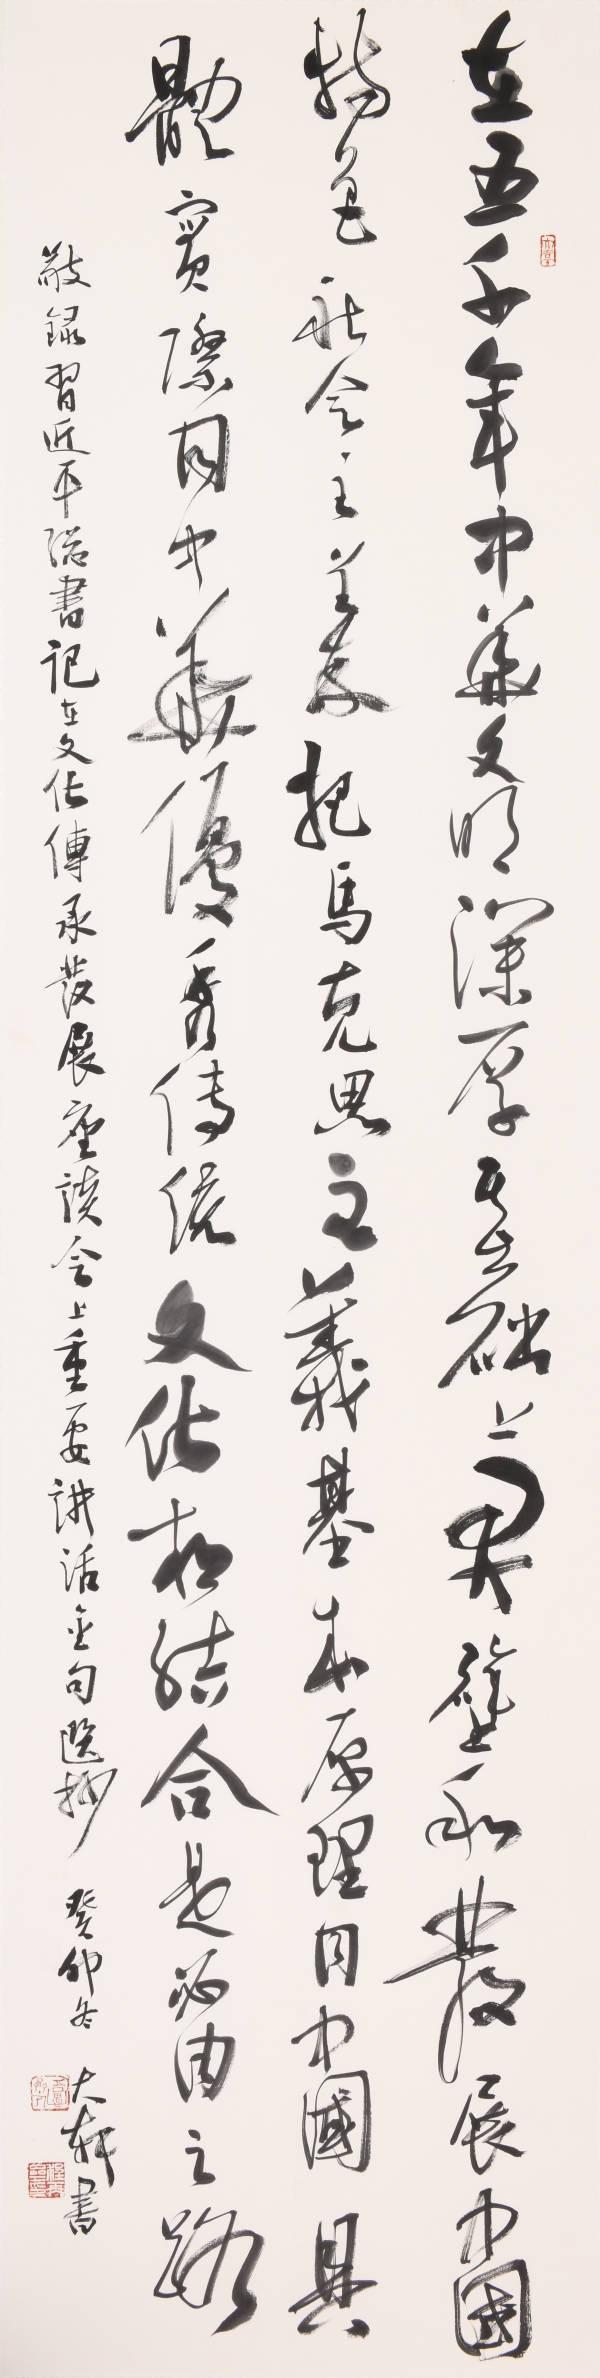 在五千年中華文明深厚基礎上開闢和發展中國
特色社會主義把馬克思主義基本原理同中國具
體實際同中華優秀傳統文化相結合是必由之路
敬錄習近平總書記在文化傳承發展座談會上重要講話金句選抄 癸卯冬 大軒書